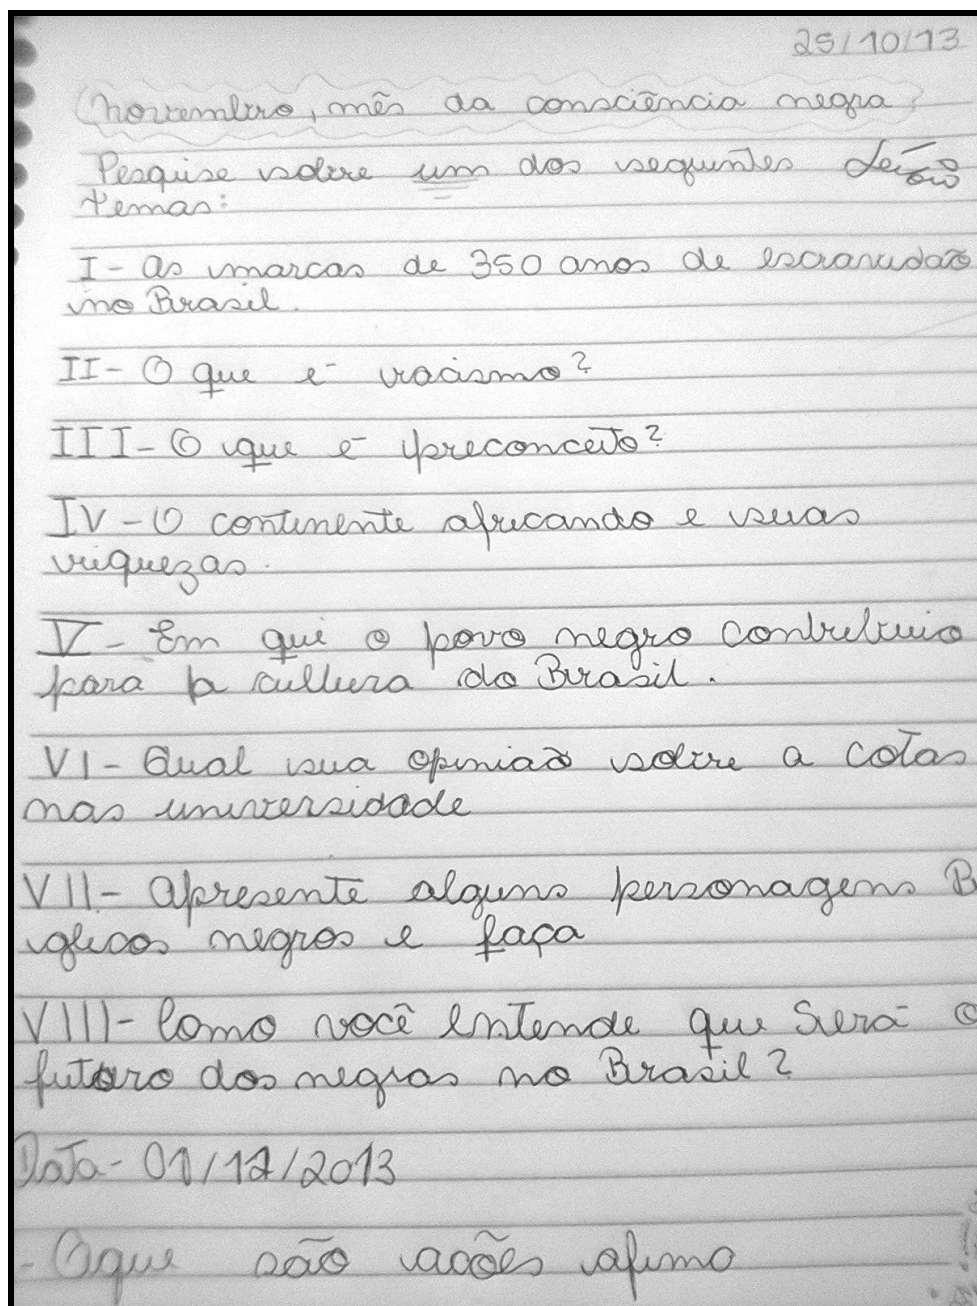 25/10/13
Novembro, mês da consciência negra
Pesquise sobre um dos seguintes
temas:
I - As marcas de 350 anos de escravidão
no Brasil.
II - O que é racismo?
III - O que é preconceito?
IV - O continente africando e suas
riquezas.
V - Em que o povo negro contribuio
para a cultura do Brasil.
VI - Qual sua opinião sobre a cotas
nas universidade
VII - Apresente alguns personagens B
negros e faça
VIII - Como você entende que Será o
futuro dos negros no Brasil?
Data - /2013
- Oque são acões afimo